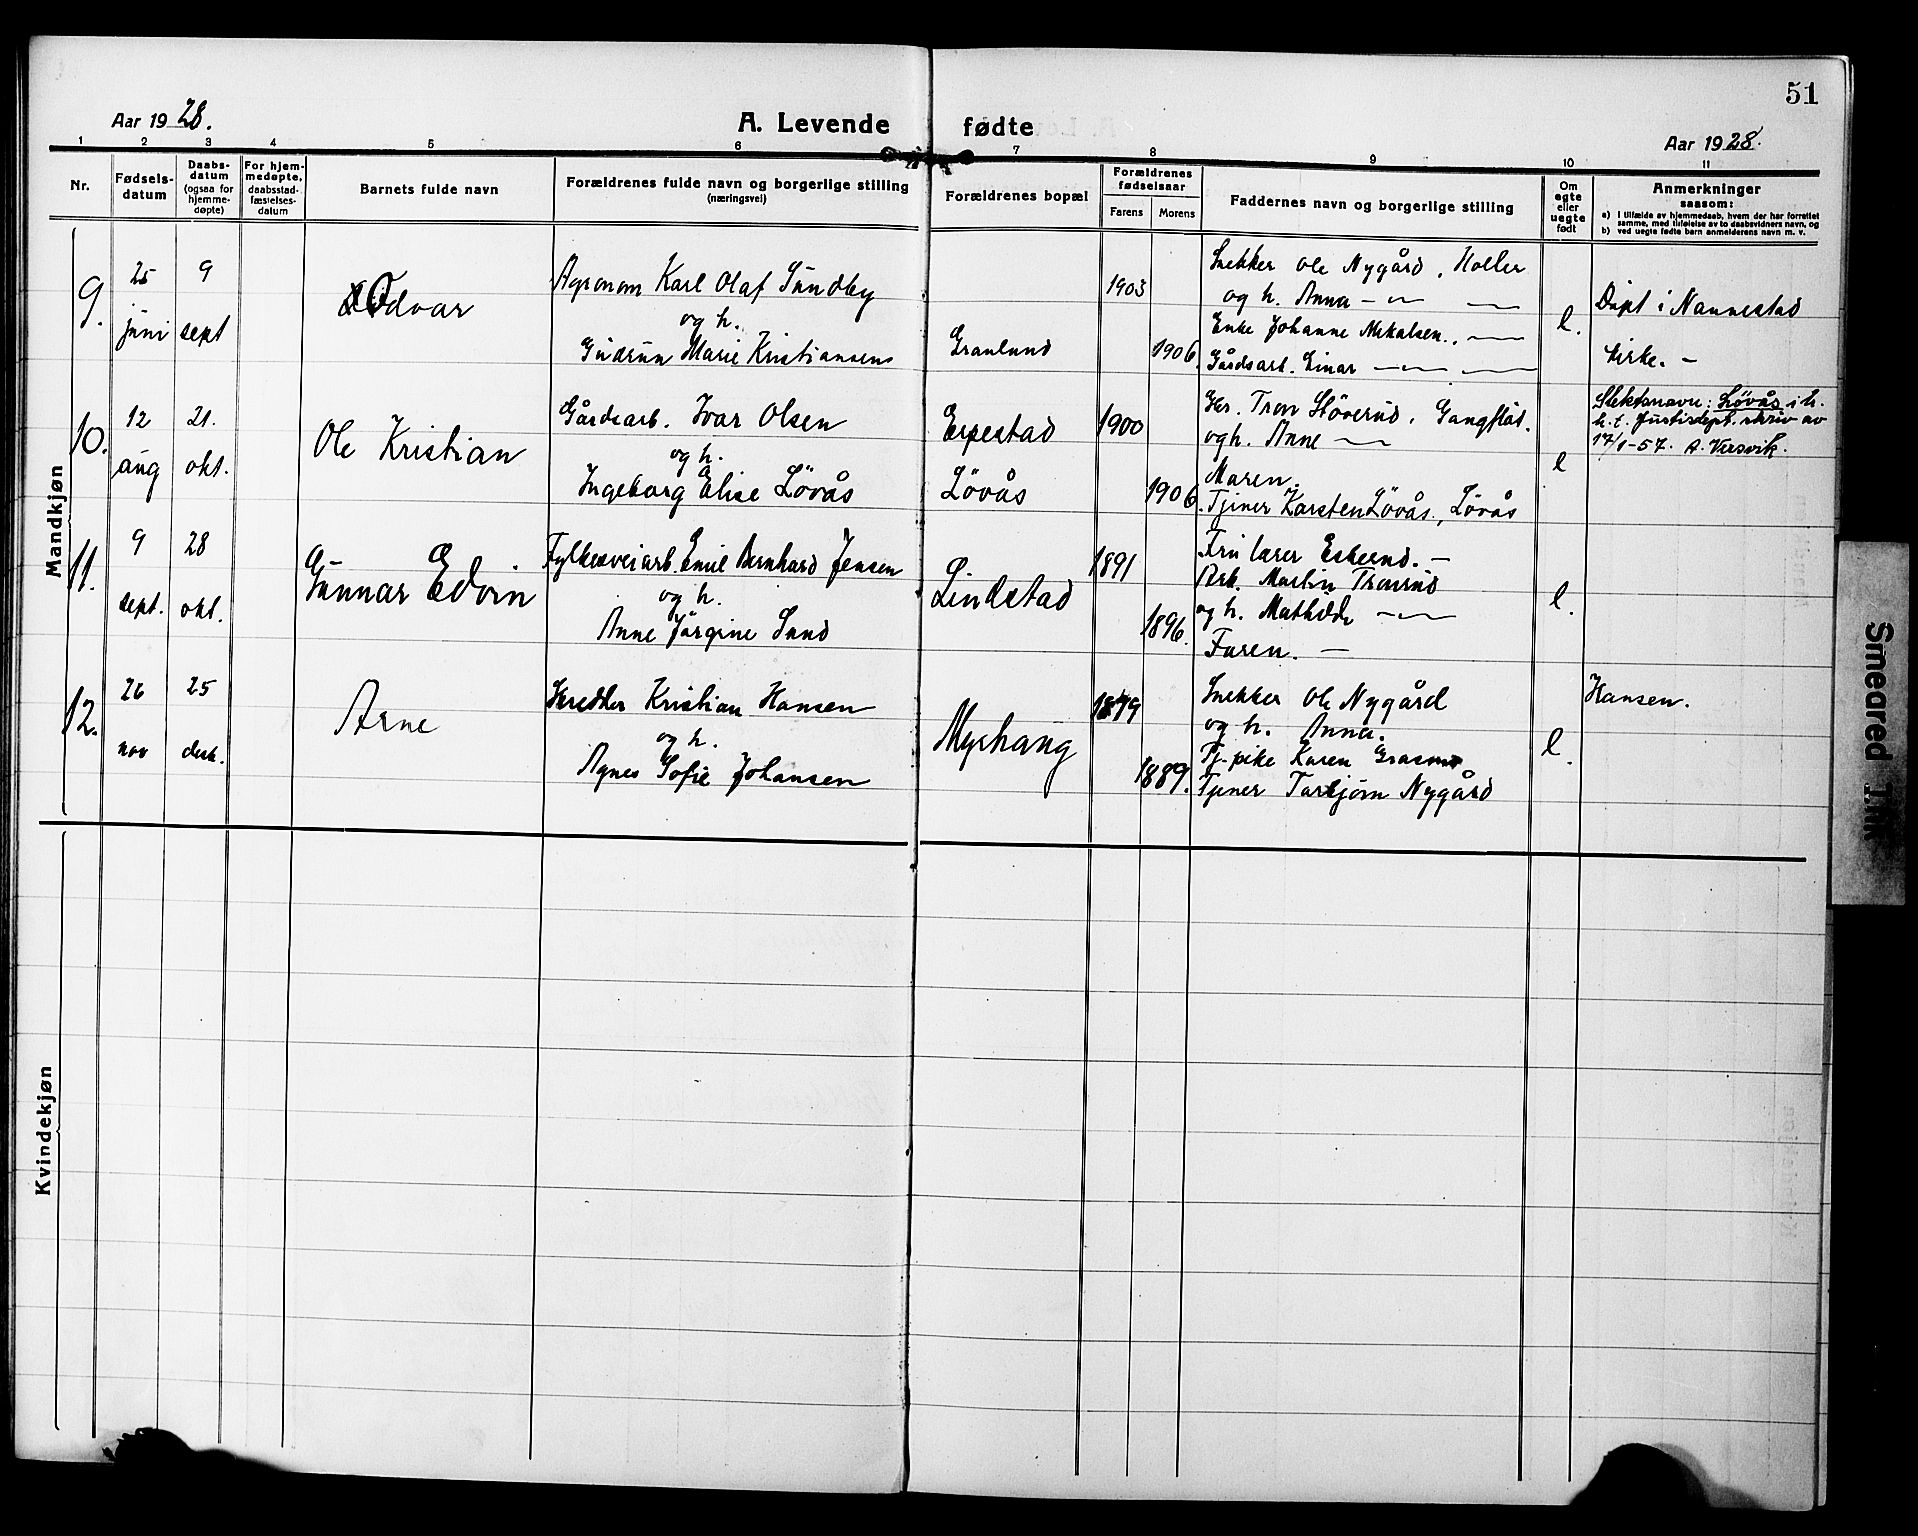 51
Aar 1928.
A. Levende fødte
Aar 1928.
1 2 3 4 5 6 7 8 9 10 11
Nr.
Fødsels-
datum
Daabs-
datum
(ogsaa for
hjemme-
døpte)
For hjem-
medøpte,
daabsstad-
fæstelses-
datum
Barnets fulde navn
Forældrenes fulde navn og borgerlige stilling
(næringsvei)
Forældrenes bopæl
Forældrenes
fødselsaar
Farens
Morens
Faddernes navn og borgerlige stilling
Om
egte
eller
uegte
født
Anmerkninger
saasom:
a) i tilfælde av hjemmedaab, hvem der har forrettet
samme, med tilføielse av to daabsvidners navn, og
b) ved uegte fødte barn anmelderens navn m. v.
Mandkjøn
9.
25
juni
9
sept
Oddvar
Agronom Karl Olaf Sundby
og h.
Gudrun Marie Kristiansen
Granlund
1903
1906.
Snekker Ole Nygård, Holler
og h. Anna — —
Enke Johanne Mikalsen., —
Gårdsarb. Einar — —
e.
Døpt i Nannestad
kirke. –
10.
12
aug
21.
okt.
Ole Kristian
Gårdsarb. Ivar Olsen
og h.
Ingeborg Elise Løvås
Espestad
Løvås
1900
1906.
Gbr. Tron Støverud, Gangflöt.
og h. Anne —
Maren.
Tjener Karsten Løvås., Løvås
e
Slektsnavn: Løvås i h.
h. t. Justisdept. skriv av
17/1-57. A. Versvik.
11.
9
sept.
28
okt.
Gunnar Edvin
Fylkesveiarb. Emil Bernhard Jensen
og h.
Anne Jørgine Sand
Lindstad
1891
1896.
Fru lærer Eskerud. –
Arb. Martin Tronrud
og h. Mathilde —
Faren. –
e.
12.
26
nov
25
desb.
Arne
Skredder Kristian Hansen
og h.
Agnes Sofie Johansen
Myrhaug
1879
1889.
Snekker Ole Nygård
og h. Anna.
Tj. pike Karen
Tjener Torbjørn Nygård
e.
Hansen.
Kvindekjøn
Smeared Ink